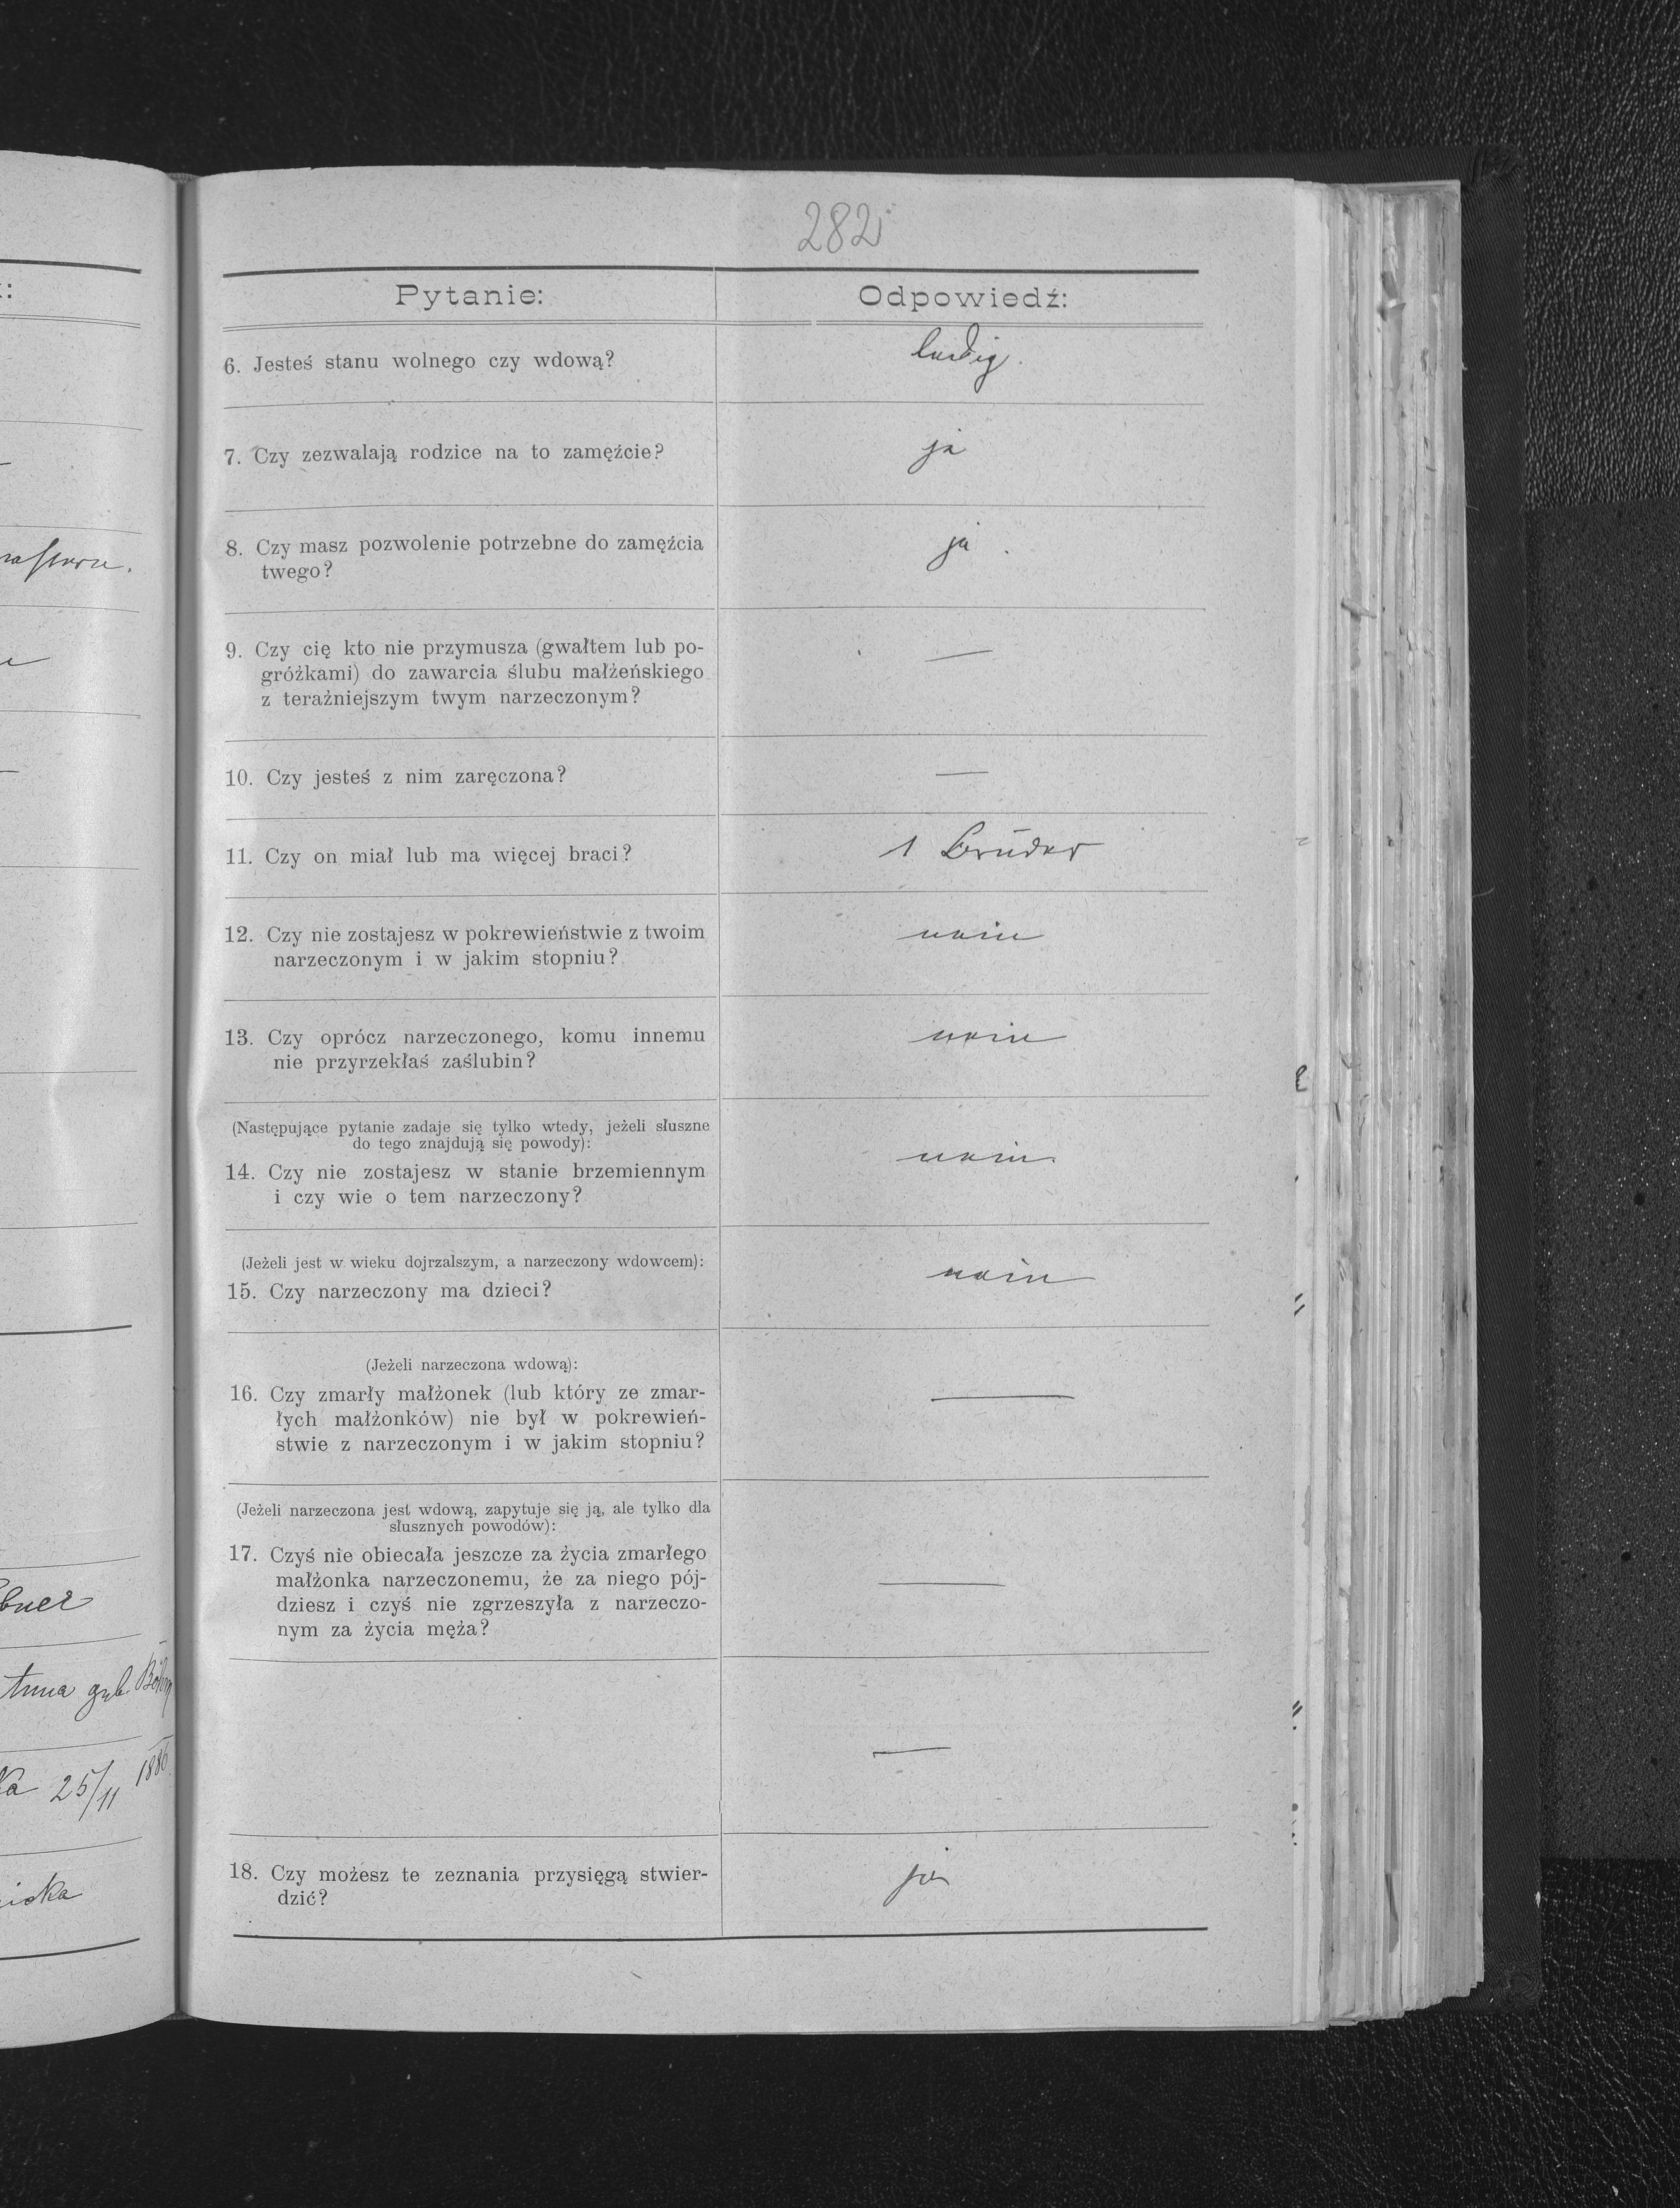 282
Pytanie:
Odpowiedź:
6. Jesteś stanu wolnego czy wdową?
ledig.
7. Czy zezwalają rodzice na to zamęźcie?
ja
8. Czy masz pozwolenie potrzebne do zamęźcia
twego?
ja.
9. Czy cię kto nie przymusza (gwałtem lub po-
gróżkami) do zawarcia ślubu małżeńskiego
z teraźniejszym twym narzeczonym?
—
10. Czy jesteś z nim zaręczona?
—
11. Czy on miał lub ma więcej braci?
1 Bruder
12. Czy nie zostajesz w pokrewieństwie z twoim
narzeczonym i w jakim stopniu?
nein
13. Czy oprócz narzeczonego, komu innemu
nie przyrzekłaś zaślubin?
nein
(Następujące pytanie zadaje się tylko wtedy, jeżeli słuszne
do tego znajdują się powody):
14. Czy nie zostajesz w stanie brzemiennym
i czy wie o tem narzeczony?
nein
(Jeżeli jest w wieku dojrzalszym, a narzeczony wdowcem):
15. Czy narzeczony ma dzieci?
nein
(Jeżeli narzeczona wdową):
16. Czy zmarły małżonek (lub który ze zmar-
łych małżonków) nie był w pokrewień-
stwie z narzeczonym i w jakim stopniu?
—
(Jeżeli narzeczona jest wdową, zapytuje się ją, ale tylko dla
słusznych powodów):
17. Czyś nie obiecała jeszcze za życia zmarłego
małżonka narzeczonemu, że za niego pój-
dziesz i czyś nie zgrzeszyła z narzeczo-
nym za życia męża?
—
—
18. Czy możesz te zeznania przysięgą stwier-
dzić?
ja
25/11 1886